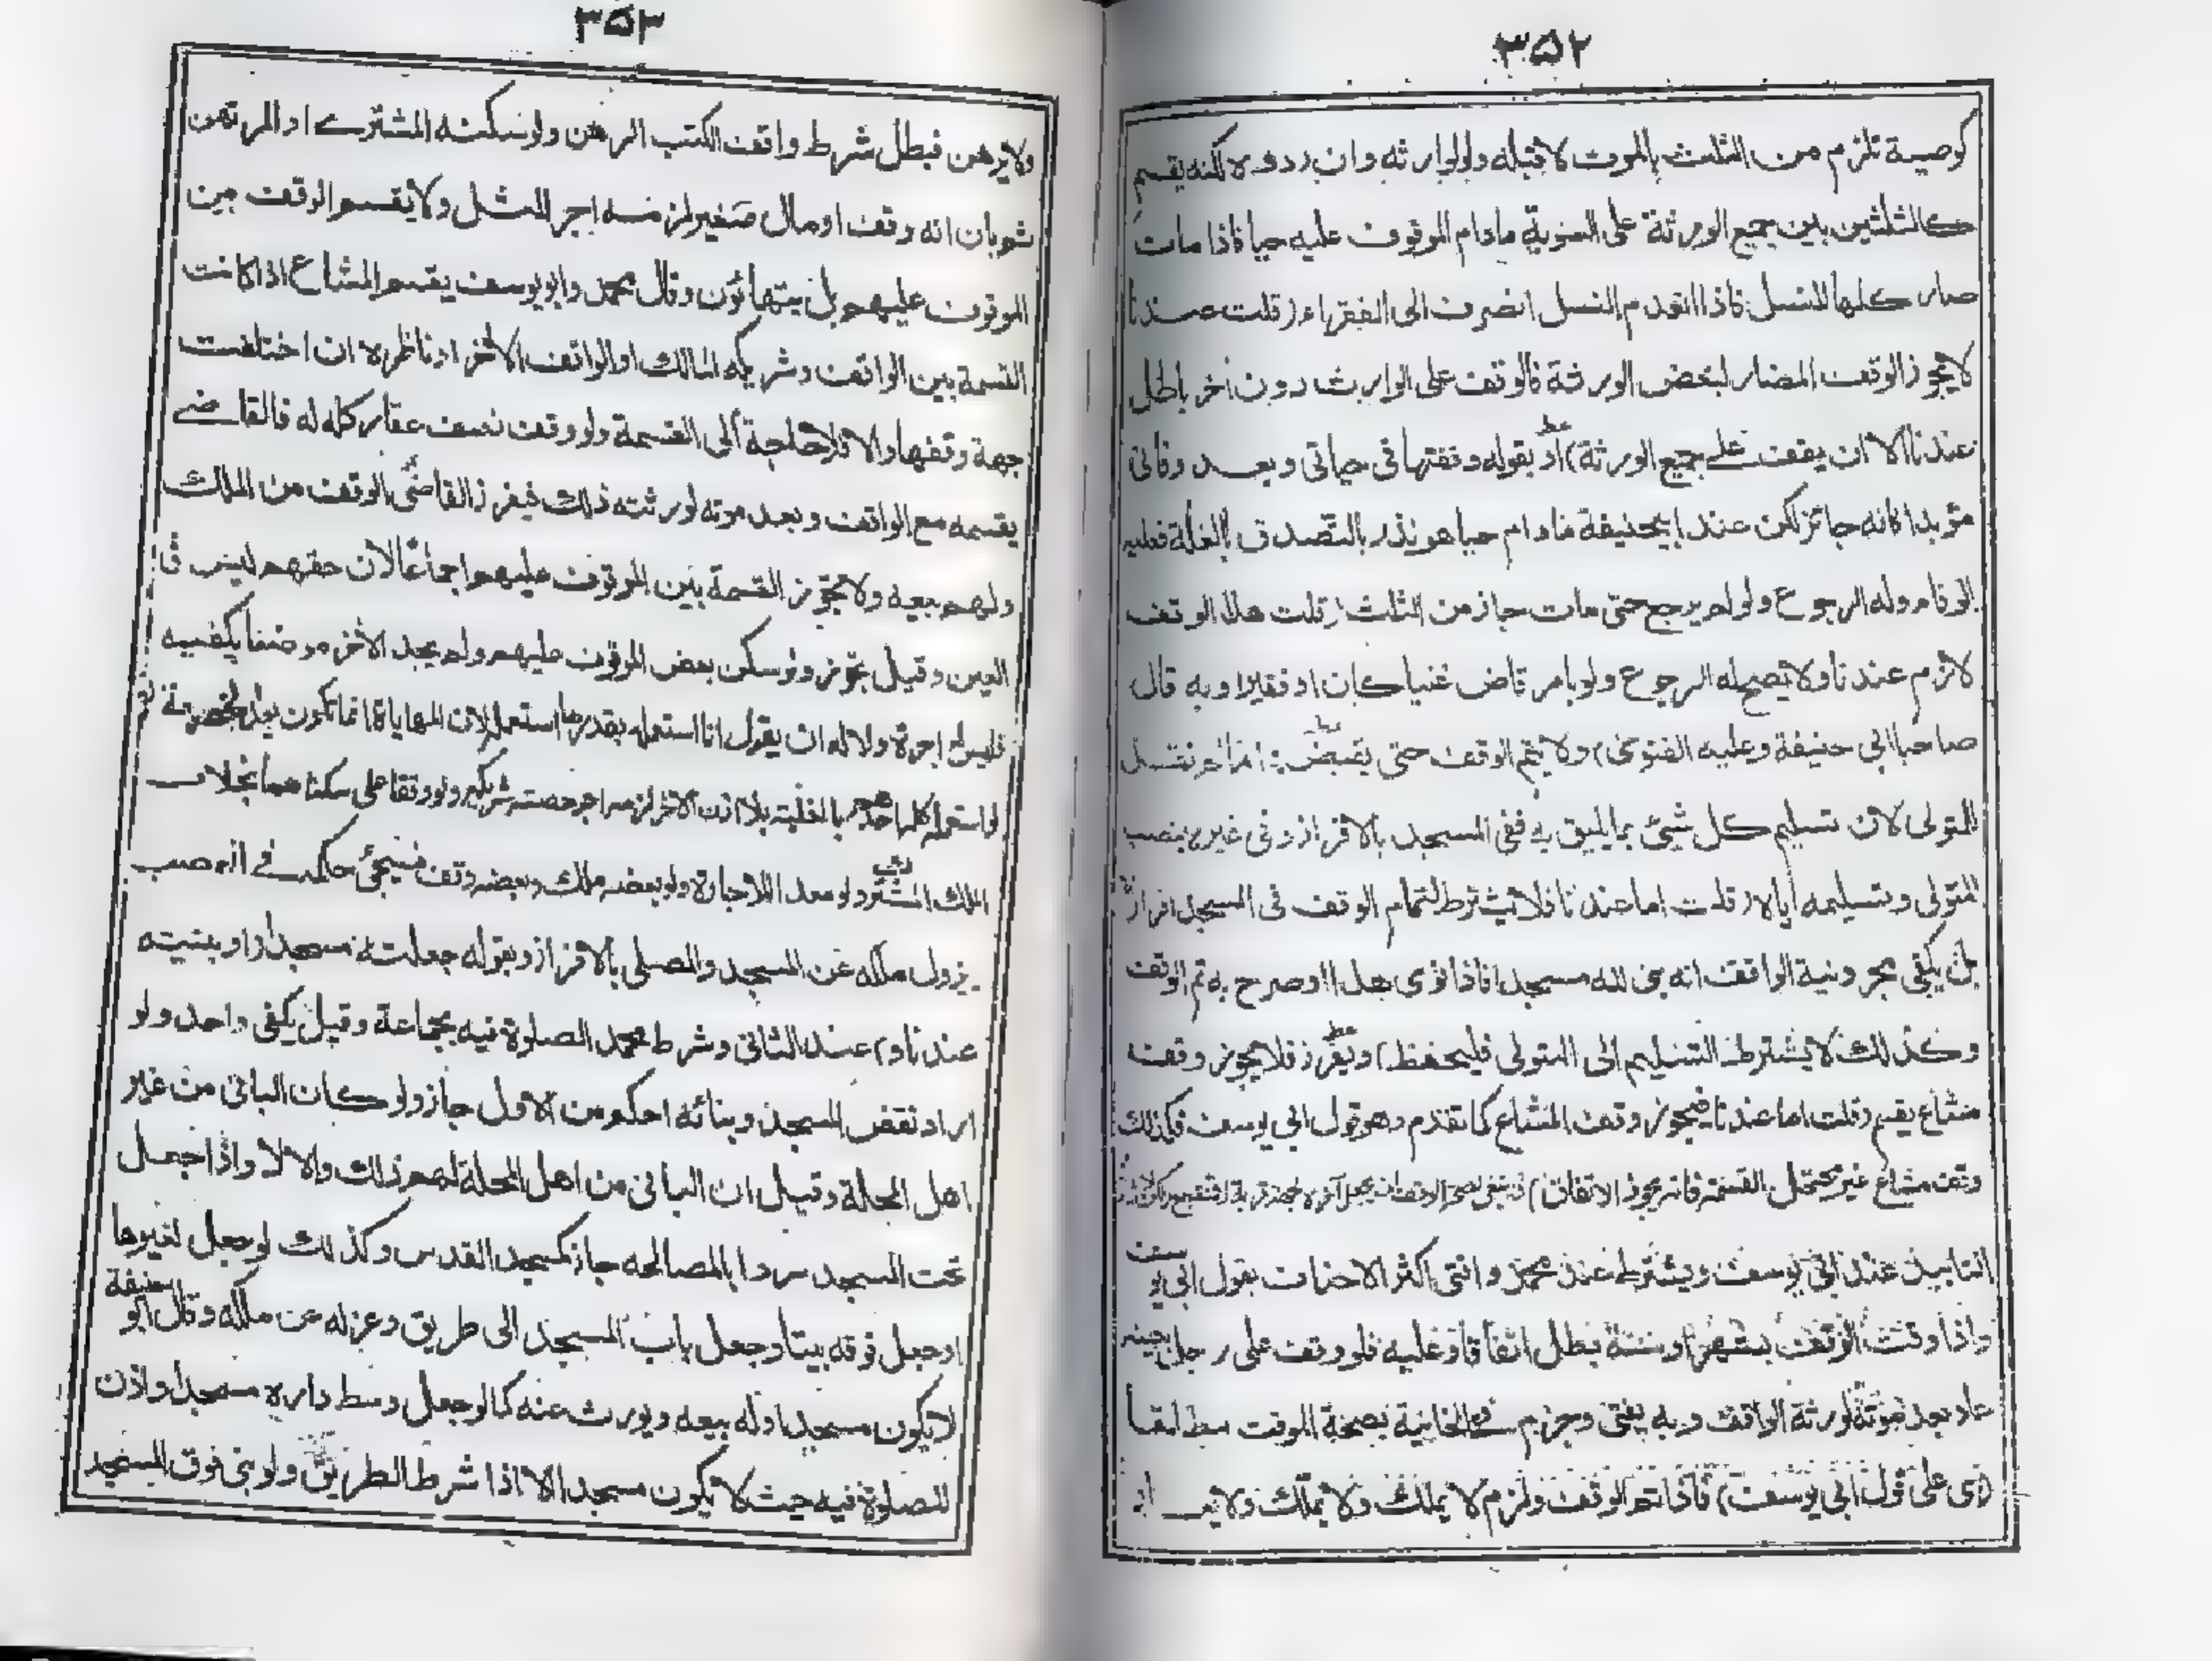 ٣٥٢
كوصية تلزم من الثلث بالموت لا قبله ولو لوارثه وان ردوه لكنه يقسم
كالثلثين بين جميع الورثة على السوية مادام الموقوف عليه حيا فاذا مات
صار كلها للنسل فاذا انعدم النسل انصرف الى الفقراء (قلت عندنا
لا يجوز الوقف المضار لبعض الورثة فالوقف على الوارث دون آخر باطل
عندنا الا ان يقف على جميع الورثة) او بقوله وقفتها فى حياتى وبعد وفاتى
مؤبدا فانه جائز لكن عند ابيحنيفة مادام حيا هو نذر بالتصدق بالغلة فعليه
الوفاء وله الرجوع ولو لم يرجع حتى مات جاز من الثلث (قلت هذا الوقف
لازم عندنا ولا يصح له الرجوع ولو بامر قاض غنيا كان او فقيرا وبه قال
صاحبا ابى حنيفة وعليه الفتوى) ولا يتم الوقف حتى يقبض
للمتولى لان تسليم كل شيئ بما يليق به ففى المسجد بالافراز وفى غيره بنصب
المتولى وتسليمه اياه (قلت اما عندنا فلا يشترط لتمام الوقف فى المسجد افراز
بل يكفى مجرد نية الواقف انه بنى لله مسجدا فاذا نوى هذا او صرح به تم الوقف
وكذلك لا يشترط التسليم الى المتولى فليحفظ) ويفرز فلا يجوز وقف
مشاع يقسم (قلت اما عندنا فيجوز وقف المشاع كما تقدم وهو قول ابى يوسف فكذلك
وقف مشاع غير محتمل القسمة فانه يجوز الاتفاق)
التابيد عند ابى يوسف ويشترط عند محمد وافتى اكثر الاحناف بقول ابى يوسف
واذا وقت الوقف بشهر او سنة بطل اتفاقا وعليه فلو وقف على رجل بعينه
عاد بعد موته لورثة الواقف وبه يفتى وجزم فى الخانية بصحة الموقت مطلقا
(اى على قول ابى يوسف) فاذا تم الوقف ولزم لا يملك ولا يملك ولا يعار
٣٥٣
ولا يرهن فبطل شرط واقف الكتب الرهن ولو سكنه المشترى او المرتهن
ثم بان انه وقف او مال صغير لزمه اجر المثل ولا يقسم الوقف بين
الموقوف عليهم بل يتهائون وقال محمد وابو يوسف يقسم المشاع اذا كانت
القسمة بين الواقف وشريكه المالك او الواقف الآخر او ناظره ان اختلفت
جهة وقفها والا فلا حاجة الى القسمة ولو وقف نصف عقار كله له فالقاضى
يقسمه مع الواقف وبعد موته لورثته ذلك فيفرز القاضى الوقف من الملك
ولهم بيعه ولا تجوز القسمة بين الموقوف عليهم اجماعا لان حقهم ليس فى
العين وقيل يجوز ولو سكن بعض الموقوف عليهم ولم يجد الآخر موضعا يكفيه
فليس له اجرة ولا له ان يقول انا استعمله بقدر ما استعمل لان المهاياة انما تكون بعد الخصومة نعم
لو استعمله كله احدهم بالغلبة بلا اذن الآخر لزمه اجر حصة شريكه ولو وقفا على سكناهما بخلاف
الملك المشترك ولو معدا للاجارة ولو بعضه ملك وبعضه وقف فيجئ حكمه فى الغصب
يزول ملكه عن المسجد والمصلى بالافراز وبقوله جعلته مسجدا (او بنيته
عندنا و) عند الثانى وشرط محمد الصلوة فيه بجماعة وقيل يكفى واحد ولو
اراد نقض المسجد وبنائه احكم من الاول جاز ولو كان البانى من غير
اهل المحلة وقيل ان البانى من اهل المحلة لهم ذلك والا لا واذا جعل
تحت المسجد سردابا لمصالحه جاز كمسجد القدس وكذلك لو جعل لغيرها
او جعل فوقه بيتا وجعل باب المسجد الى طريق وعزله عن ملكه وقال ابو حنيفة
لا يكون مسجدا وله بيعه ويورث عنه كما لو جعل وسط داره مسجدا واذن
للصلوة فيه حيث لا يكون مسجدا الا اذا شرط الطريق ولو بنى فوق المسجد